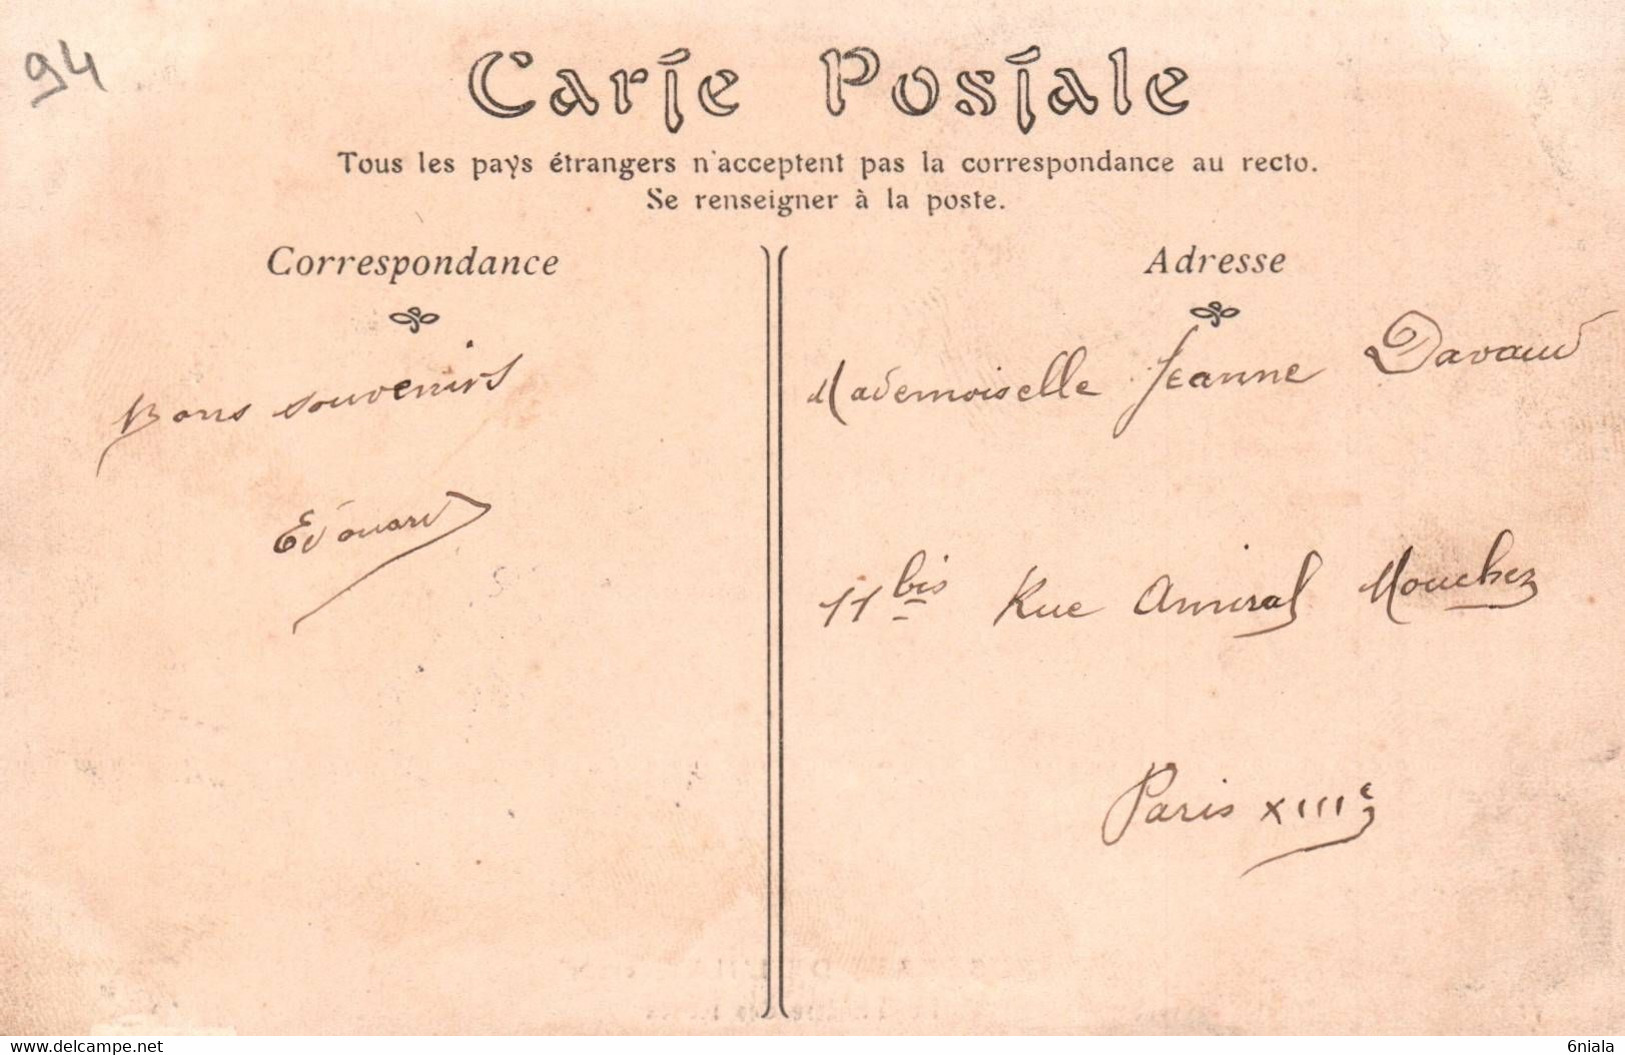 94
Carte Postale
Tous les pays étrangers n'acceptent pas la correspondance au recto.
Se renseigner à la poste.
Correspondance
Bons souvenirs
Edouard
Adresse
Mademoiselle Jeanne Davaud
11 bis Rue Amiral Mouchez
Paris XIIIe
www.delcampe.net
6niala